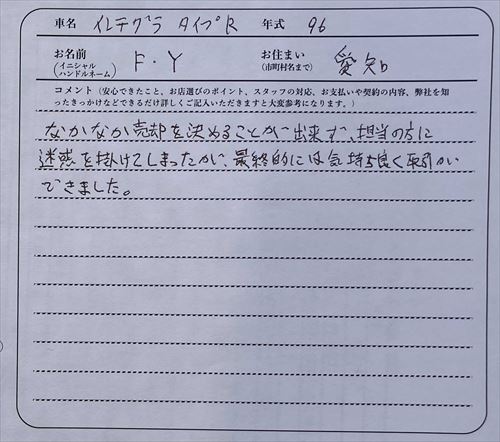 車名 インテグラ タイプR 年式 96
お名前 (イニシャル ハンドルネーム) F・Y お住まい (市町村名まで) 愛知
コメント（安心できたこと、お店選びのポイント、スタッフの対応、お支払いや契約の内容、弊社を知
ったきっかけなどできるだけ詳しくご記入いただきますと大変参考になります。）
なかなか売却を決めることが出来ず、担当の方に
迷惑を掛けてしまったが、最終的には気持ち良く取引が
できました。